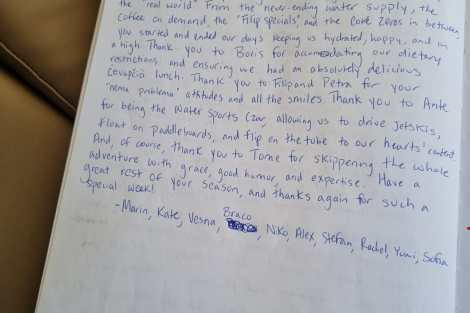 the "real world". From the never-ending water supply, the
coffee on demand, the "Filip specials," and the Coke Zeros in between,
you started and ended our days keeping us hydrated, happy, and on
a high. Thank you to Boris for accomodating our dietary
restrictions and ensuring we had an absolutely delicious
lunch. Thank you to Filip and Petra for your
'nema problema' attitudes and all the smiles. Thank you to Ante
for being the Water Sports Czar, allowing us to drive jetskis,
float on paddleboards, and flip on the tube to our hearts' content.
And, of course, thank you to Tome for skippering the whole
adventure with grace, good humor, and expertise. Have a
great rest of your season, and thanks again for such a
special week!
Braco
-Marin, Kate, Vesna, , Niko, Alex, Stefan, Rachel, Yumi, Sofia